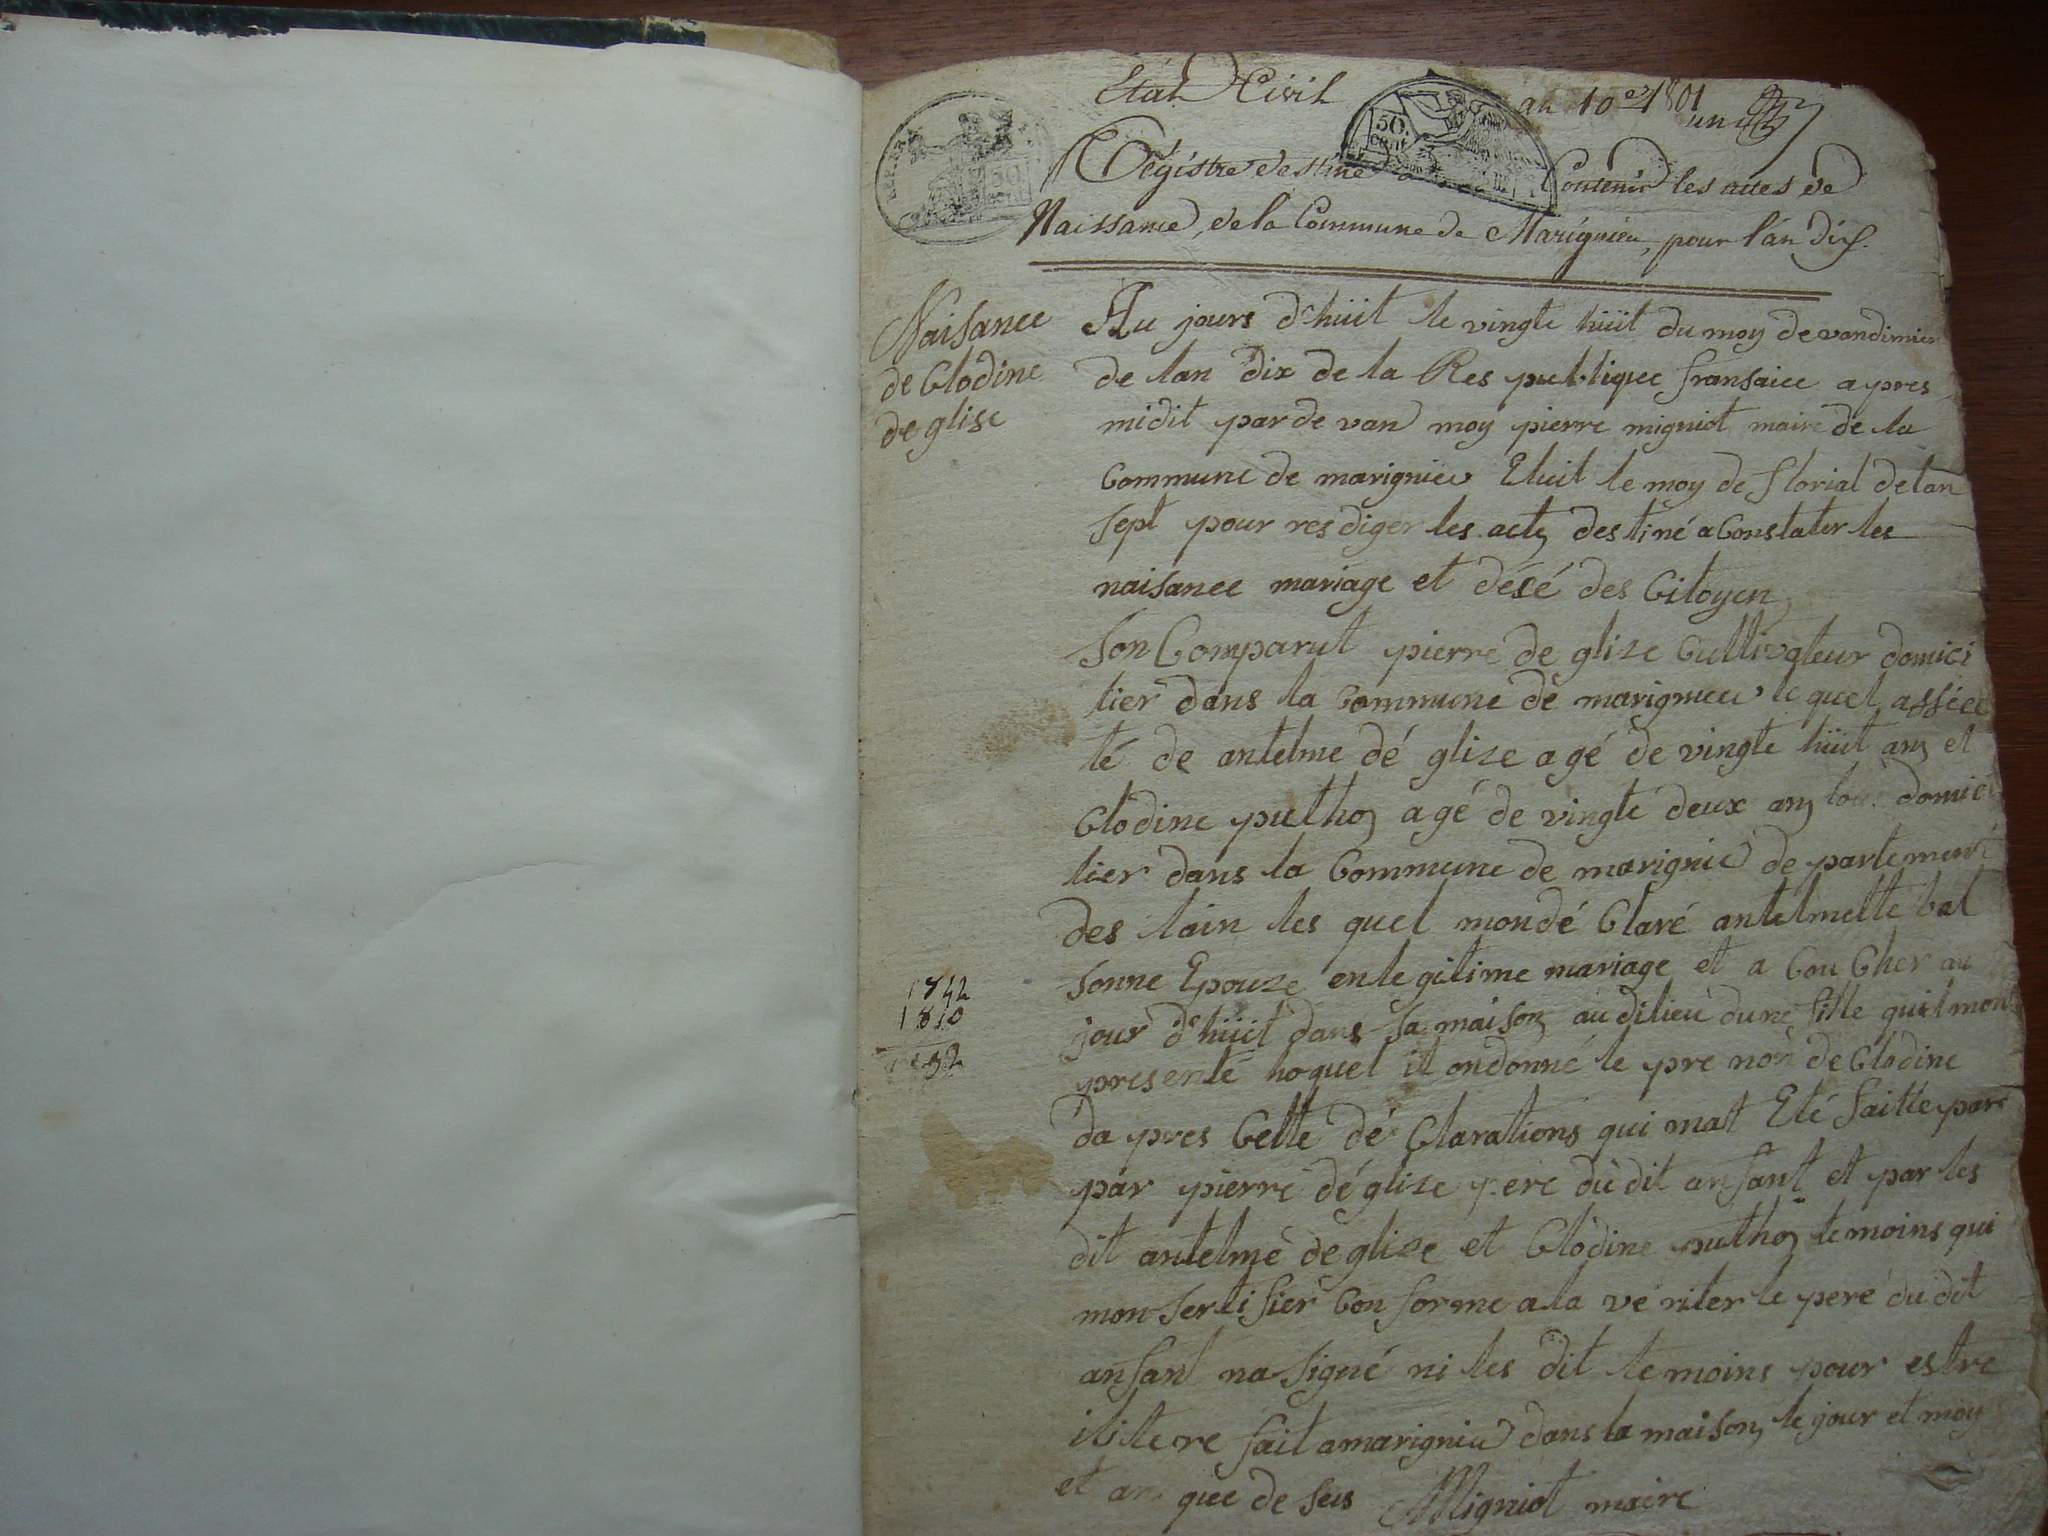 Etat Civil
an 10 et 1801
REP. FRA.
50
50.
cent
Régistre destiné a Contenir les actes de
Naissance, de la Commune de Marignieu, pour l'an dix.
Naisance
de Clodine
de glise
Au jours d'hüit le vingte hüit du moy de vandimier
de lan dix de la Res publiquee fransaice apres
midit par de van moy pierre migniot maire de la
Commune de marignieu Eluit le moy de florial de lan
sept pour resdiger les acte destiné a Constater les
naisance mariage et désé des Citoyen
Son Comparut pierre de glise Cultivateur domici
lier dans la Commune de marignieu le quel assiee
té de antelme dé glize agé de vingte hüit ans et
Clodine puthon agé de vingte deux ans tous domici
lier dans la Commune de marignieu de partement
des lain les quel mondé Claré antelmette bal
sonne Epouze en legitime mariage et a Cou Cher au
jour d'hüit dans sa maison au dilieu dune fille quil mont
presenté hoquel il ondonné le pre non de Clodine
da pres Cette dé Clarations qui mat Eté faitte par
par pierre dé glize pere du dit anfant et par les
dit antelme de glize et Clodine puthon temoins qui
mon sertifier Conforme a la vé riter le pere du dit
anfant na signé ni les dit temoins pour estre
ilitere fait a marignieu dans la maison le jour et moy
et an que de sus Migniot maire
1842
1810